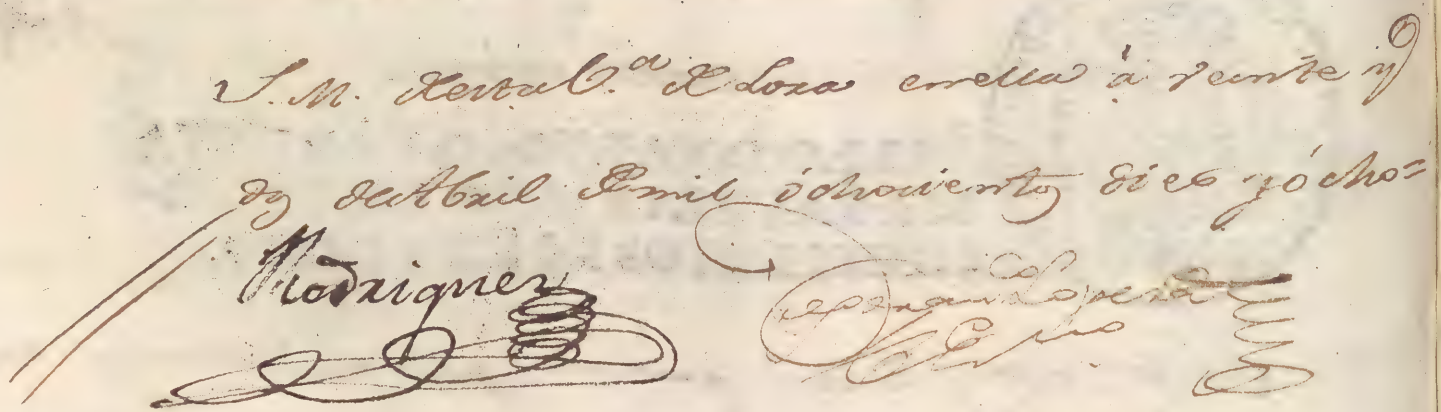 S. M. desta V.ª de Lora enella à veinte y
dos de Abril de mil ôchocientos dies yôcho=
Rodriguez